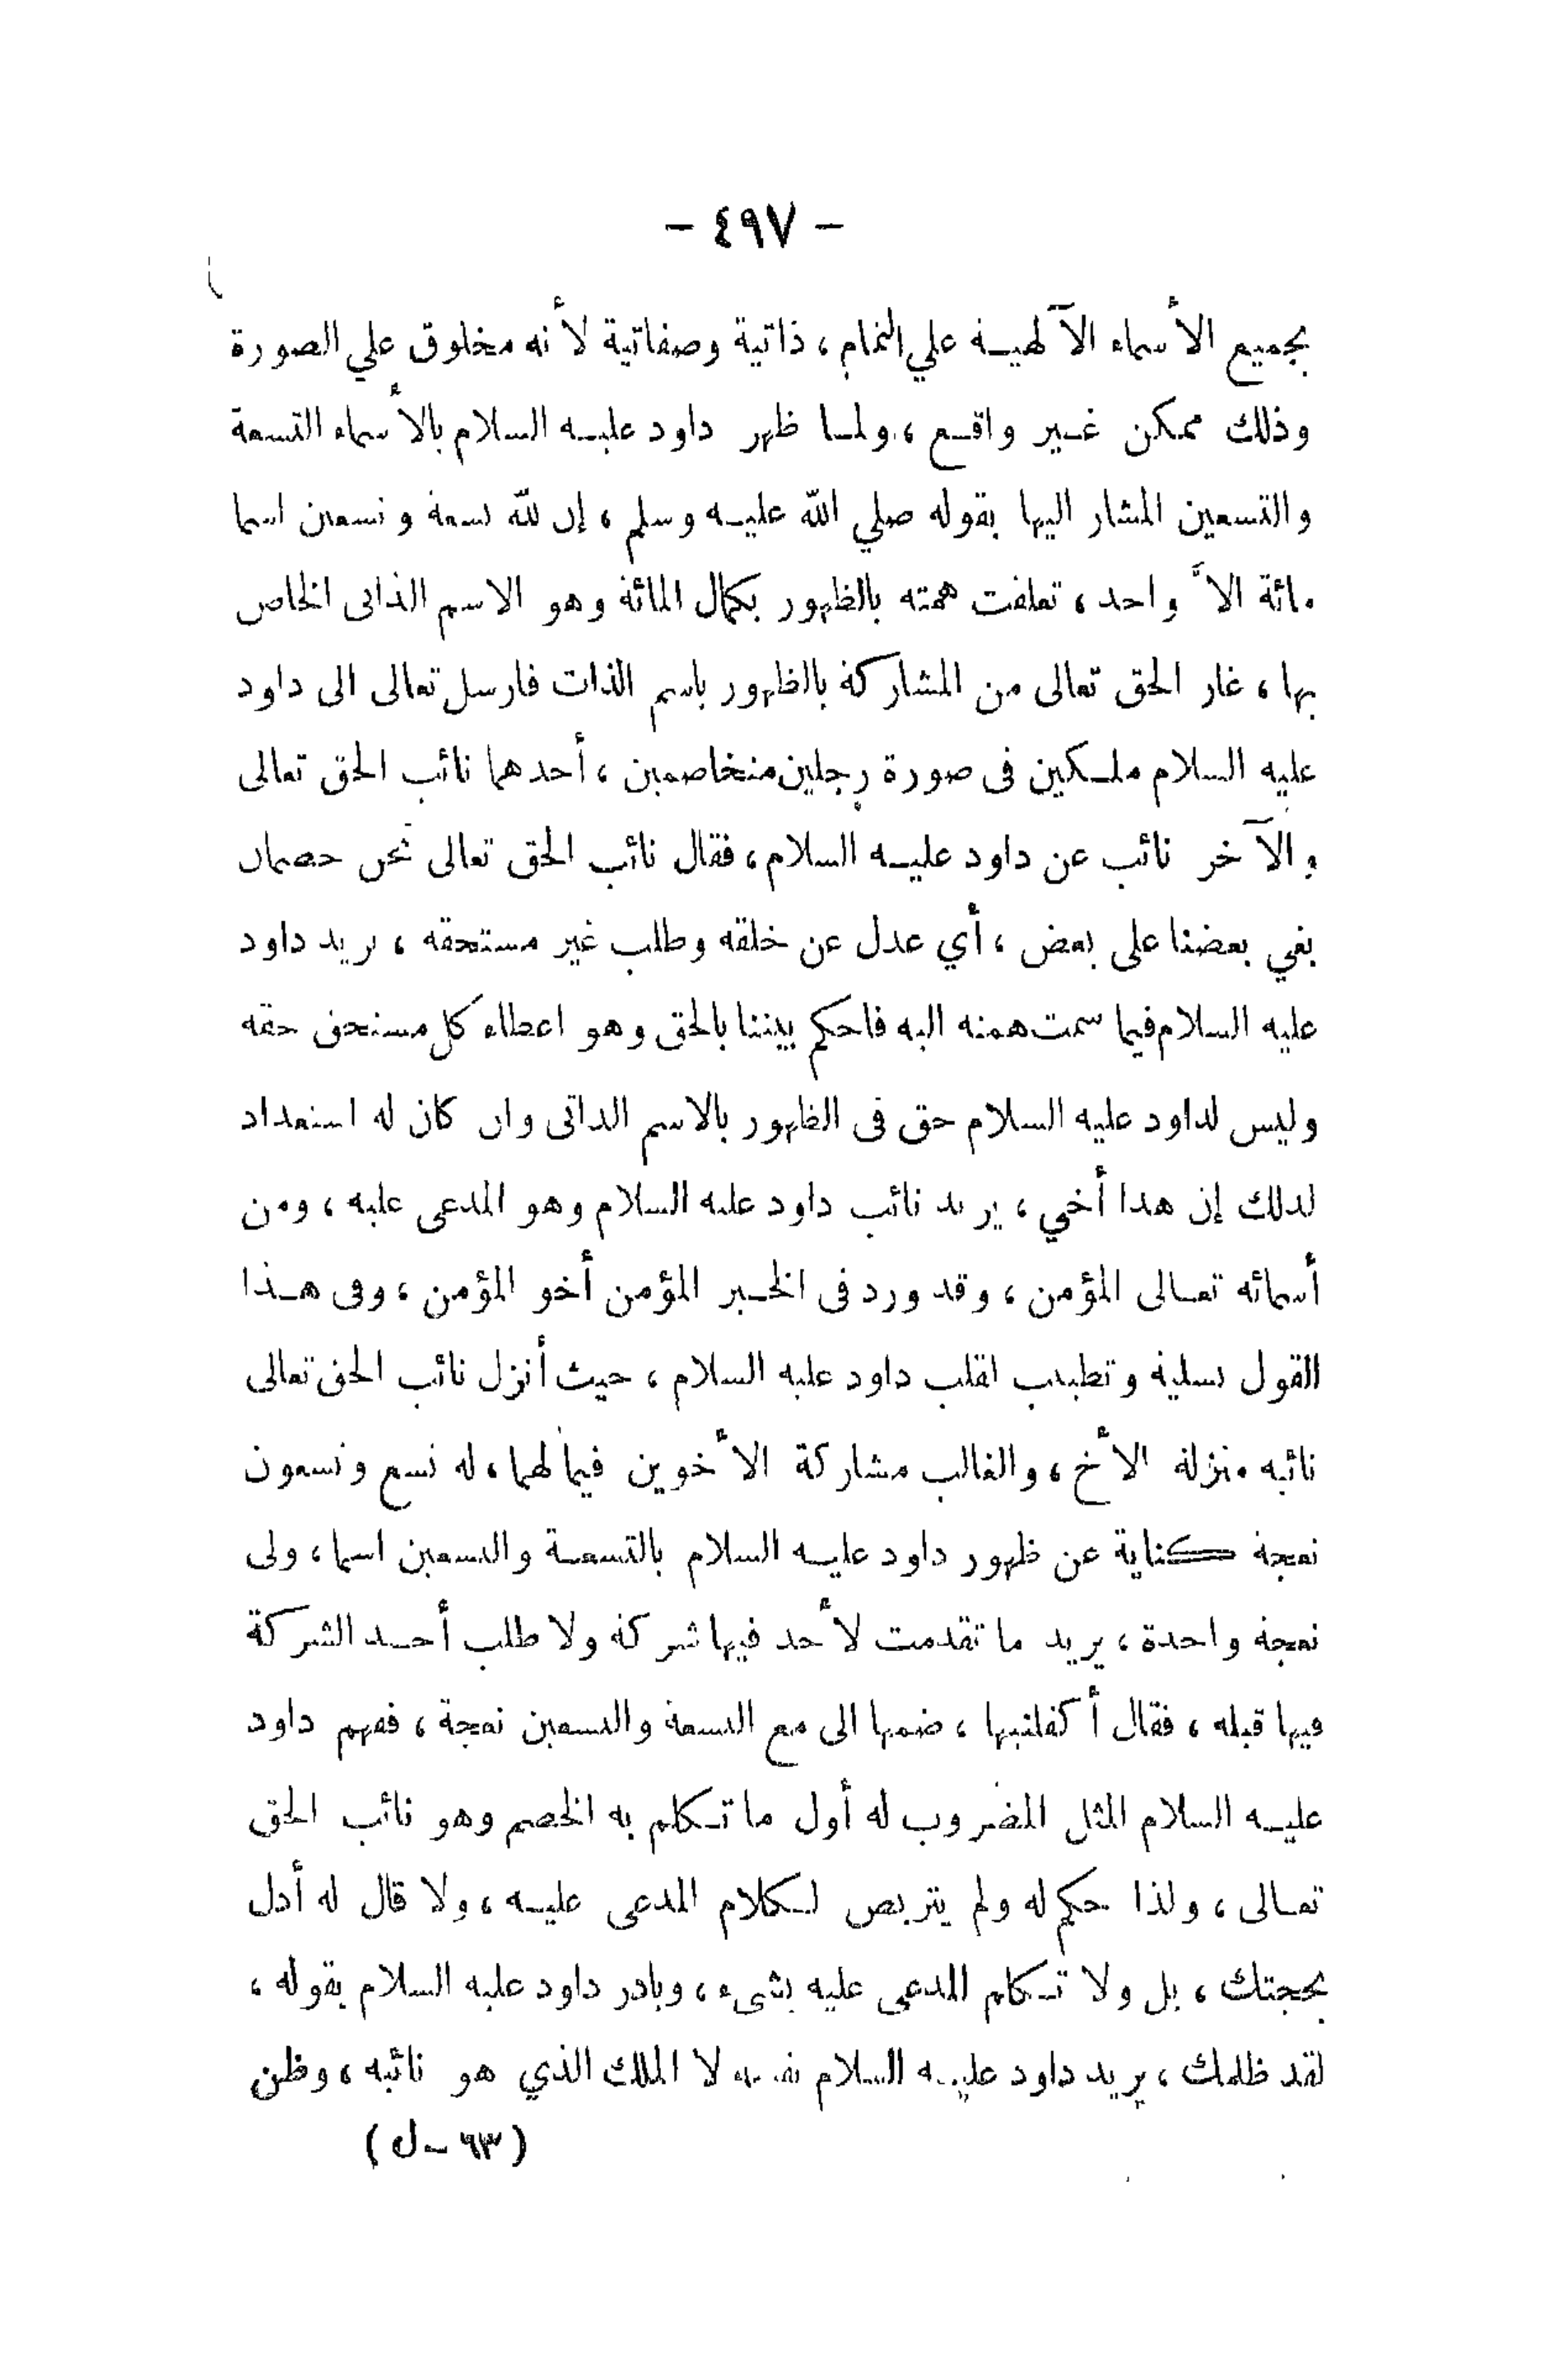 - ٤٩٧ -
بجميع الأسماء الآلهية علي التمام، ذاتية وصفاتية لأنه مخلوق علي الصورة
وذلك ممكن غير واقع، ولما ظهر داود عليه السلام بالأسماء التسعة
والتسعين المشار اليها بقوله صلي الله عليه وسلم، إن لله تسعة وتسعين اسما
مائة الاّ واحد، تعلقت همته بالظهور بكمال المائة وهو الاسم الذاتى الخاص
بها، غار الحق تعالى من المشاركة بالظهور باسم الذات فارسل تعالى الى داود
عليه السلام ملكين فى صورة رجلين متخاصمين، أحدهما نائب الحق تعالى
والآخر نائب عن داود عليه السلام، فقال نائب الحق تعالى نحن خصمان
بغي بعضنا على بعض، أي عدل عن خلقه وطلب غير مستحقه، يريد داود
عليه السلام فيما سمت همته اليه فاحكم بيننا بالحق وهو اعطاء كل مستحق حقه
وليس لداود عليه السلام حق فى الظهور بالاسم الذاتى وان كان له استعداد
لذلك إن هذا أخي، يريد نائب داود عليه السلام وهو المدعى عليه، ومن
أسمائه تعالى المؤمن، وقد ورد فى الخبر المؤمن أخو المؤمن، وفى هذا
القول تسلية وتطييب لقلب داود عليه السلام، حيث أنزل نائب الحق تعالى
نائبه منزلة الأخ، والغالب مشاركة الأخوين فيما لهما، له تسع وتسعون
نعجة كناية عن ظهور داود عليه السلام بالتسعة والتسعين اسما، ولى
نعجة واحدة، يريد ما تقدمت لأحد فيها شركة ولا طلب أحد الشركة
فيها قبله، فقال أكفلنيها، ضمها الى مع التسعة والتسعين نعجة، ففهم داود
عليه السلام المثل المضروب له أول ما تكلم به الخصم وهو نائب الحق
تعالى، ولذا حكم له ولم يتربص لكلام المدعى عليه، ولا قال له أدل
بحجتك، بل ولا تكلم المدعى عليه بشىء، وبادر داود عليه السلام بقوله،
لقد ظلمك، يريد داود عليه السلام نفسه لا الملك الذي هو نائبه، وظن
(٦٣ - ل)